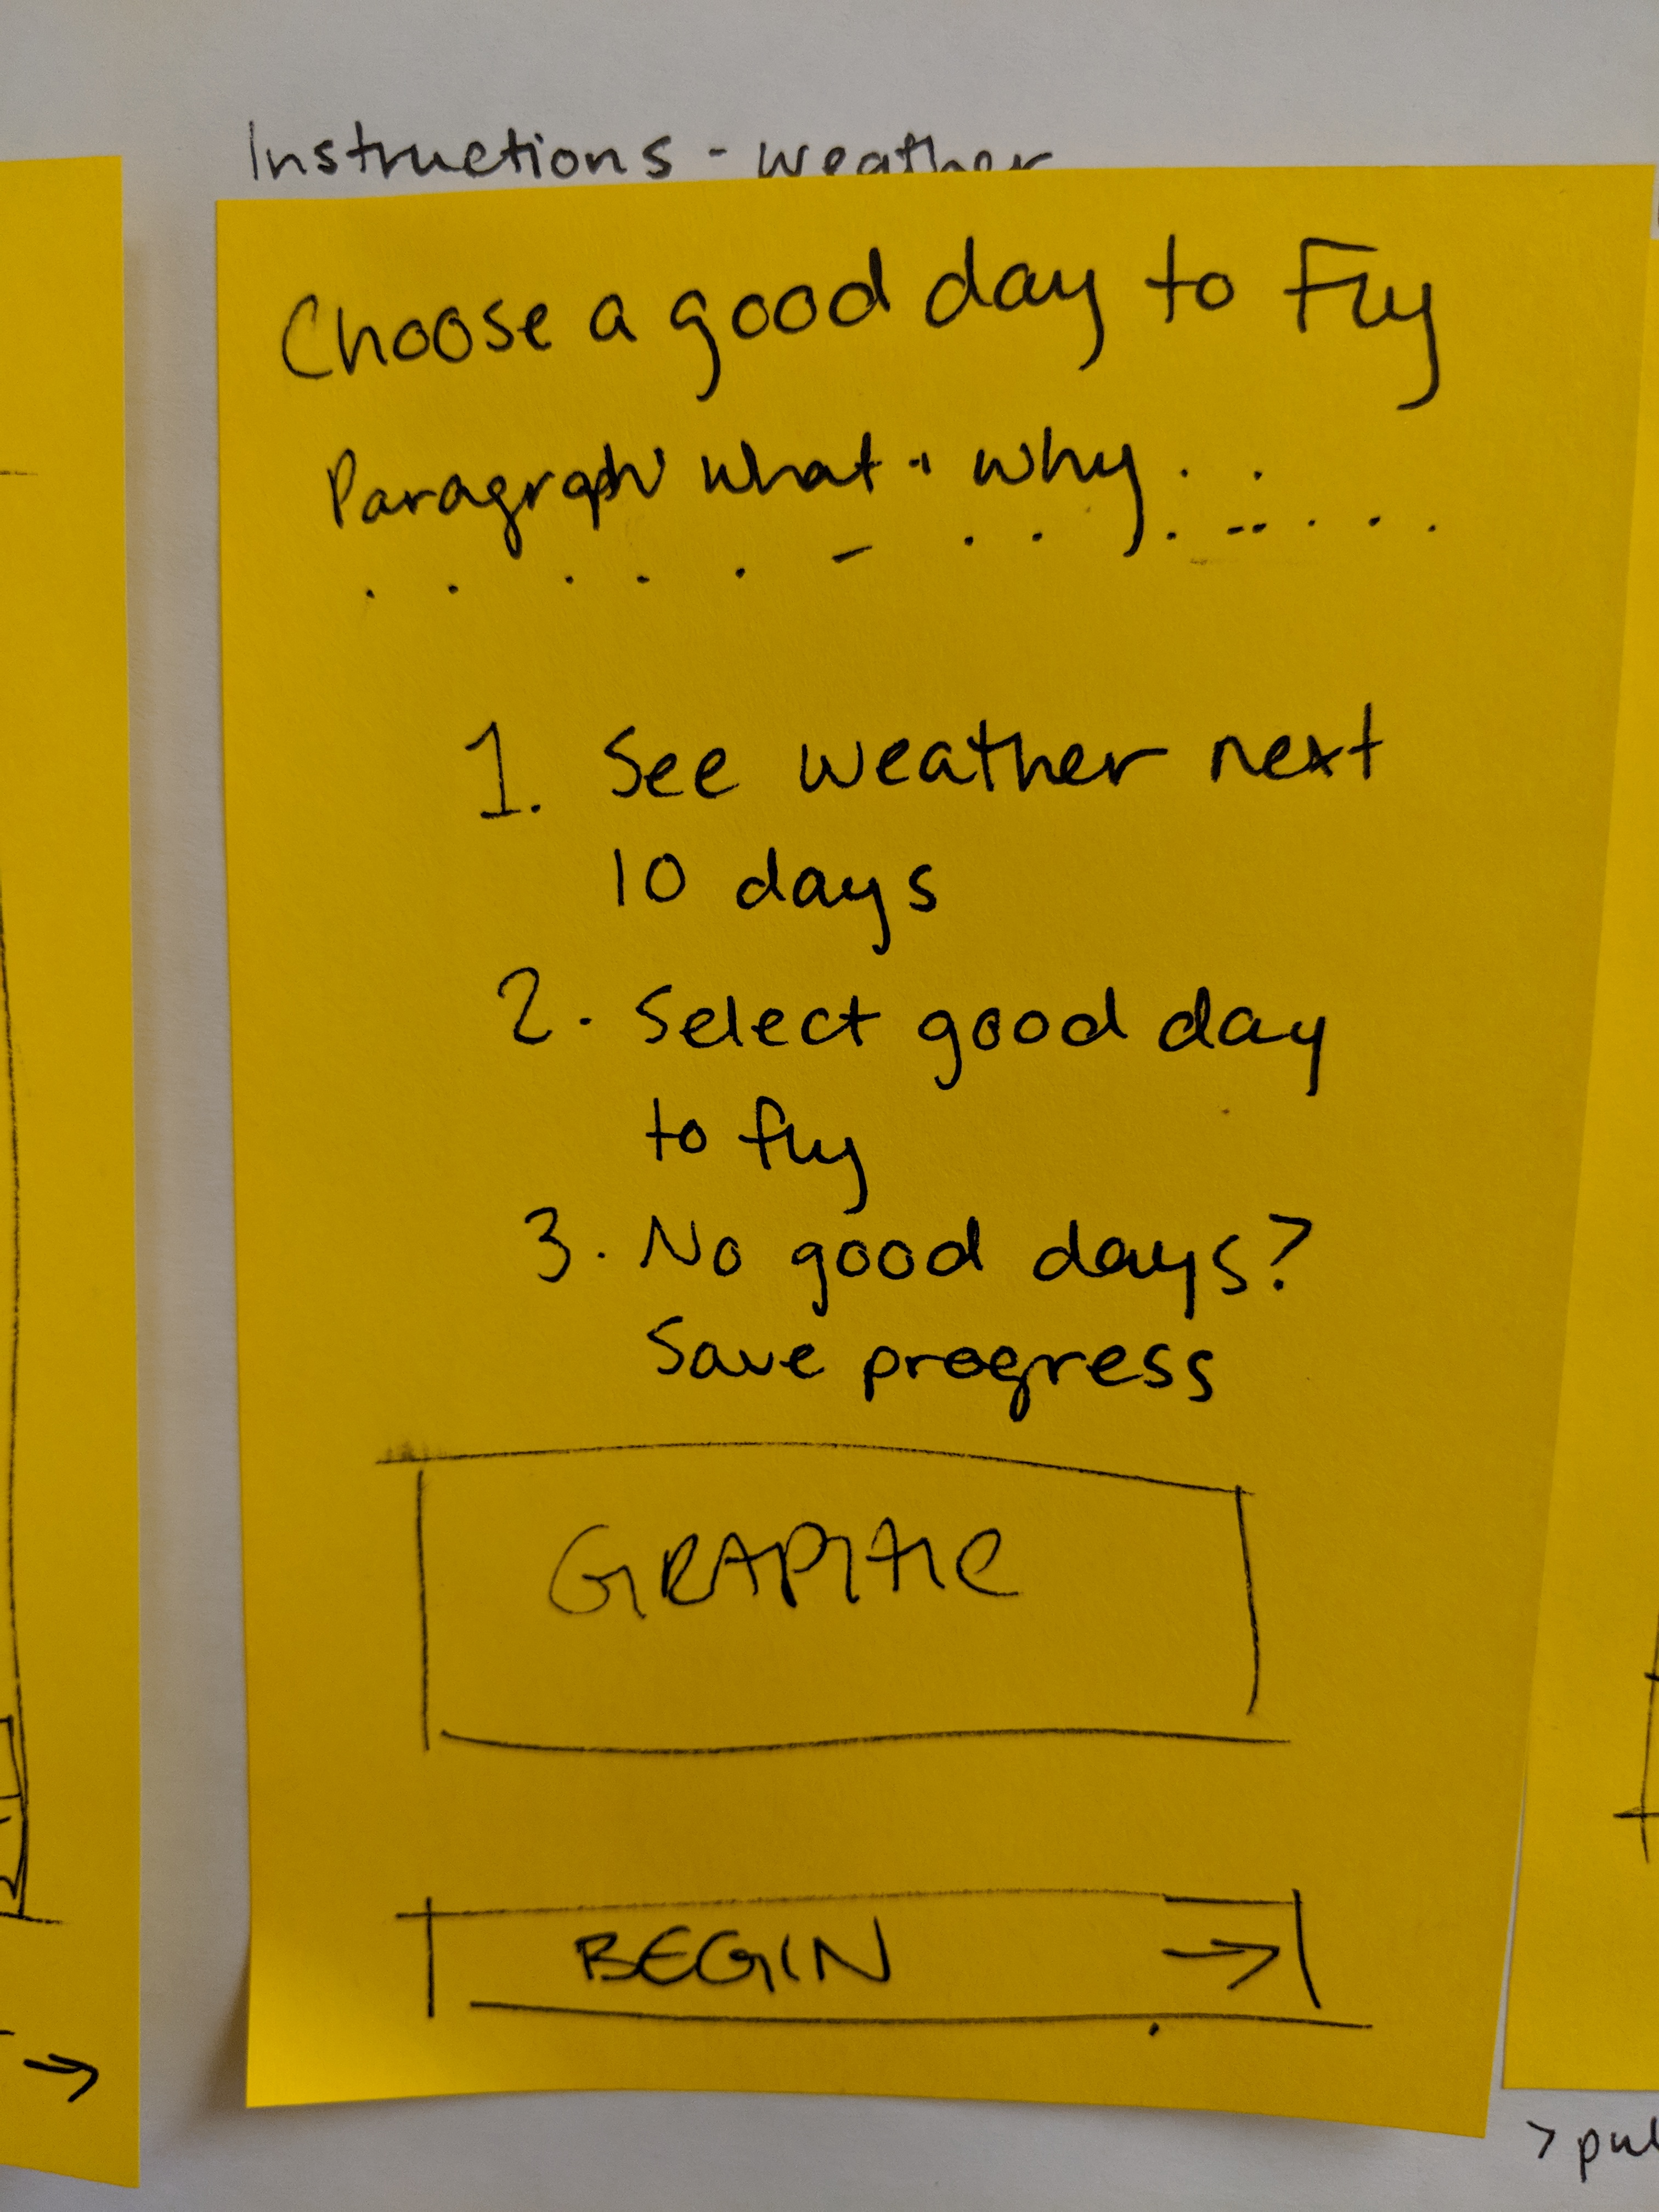 Instructions - weather
Choose a good day to Fly
Paragraph what + why . .
1. See weather next
10 days
2. Select good day
to fly
3. No good days?
Save progress
GRAPHIC
BEGIN →
→
>